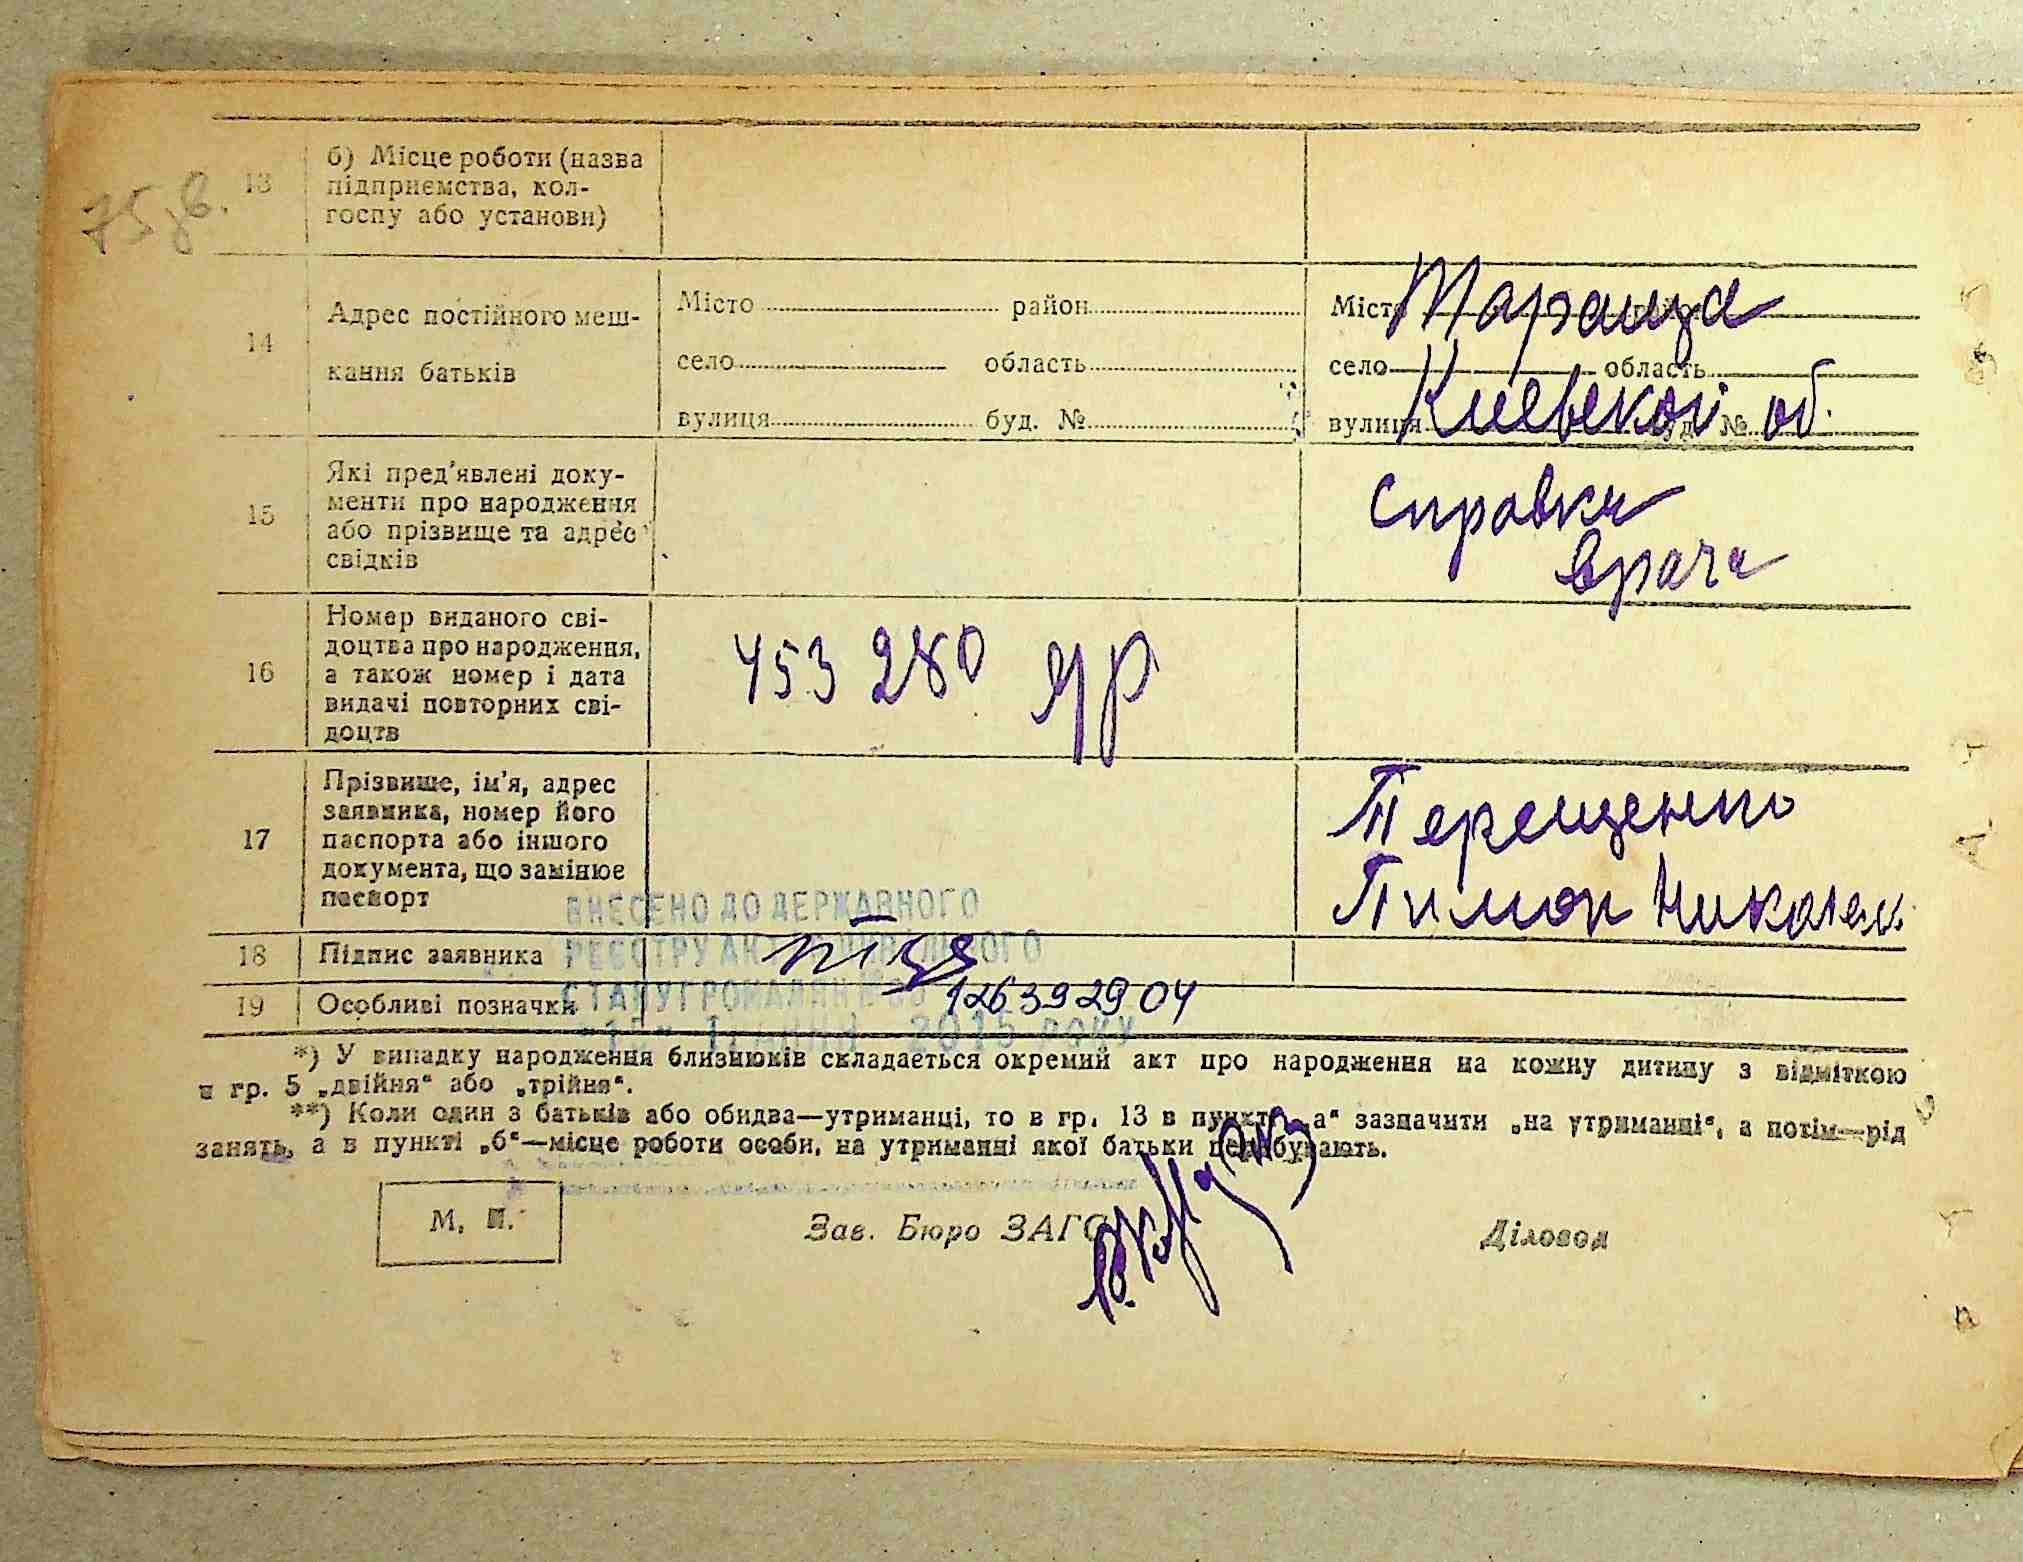 75 зв.
13 б) Місце роботи (назва
підприємства, кол-
госпу або установи)
14 Адрес постійного меш-
кання батьків
Місто район
село область
вулиця буд. №
Місто
Тараща
село область
Киевской об.
вулиця буд. №
15 Які пред'явлені доку-
менти про народження
або прізвище та адрес
свідків
справки
врача
16 Номер виданого сві-
доцтва про народження,
а також номер і дата
видачі повторних сві-
доцтв
453280 ЯР
17 Прізвище, ім'я, адрес
заявника, номер його
паспорта або іншого
документа, що замінює
паспорт
Терещенко
Пимон Николаев.
ВНЕСЕНО ДО ДЕРЖАВНОГО
РЕЄСТРУ АКТІВ ЦИВІЛЬНОГО
СТАНУ ГРОМАДЯН ЗА №
2015 РОКУ
18 Підпис заявника
19 Особливі позначки
126392904
*) У випадку народження близнюків складається окремий акт про народження на кожну дитину з відміткою
в гр. 5 „двійня“ або „трійня“.
**) Коли один з батьків або обидва—утриманці, то в гр. 13 в пункті „а“ зазначити „на утриманні“, а потім—рід
занять, а в пункті „б“—місце роботи особи, на утриманні якої батьки перебувають.
М. П.
Зав. Бюро ЗАГС
Діловод